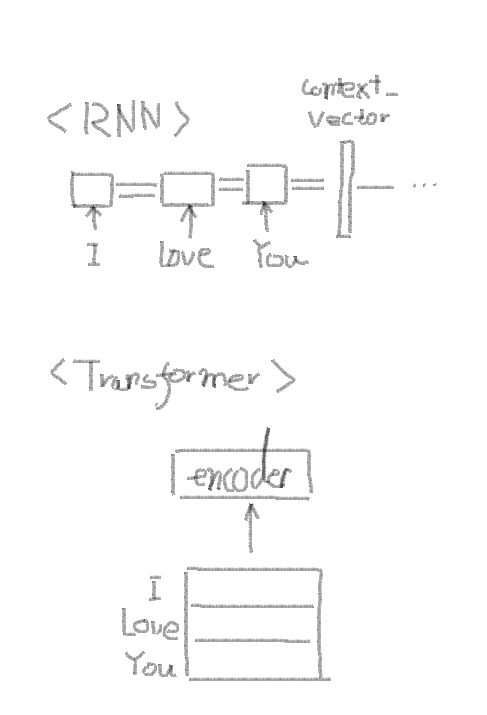 <RNN>
Context_
Vector
...
I Love You
<Transformer>
encoder
I
Love
You